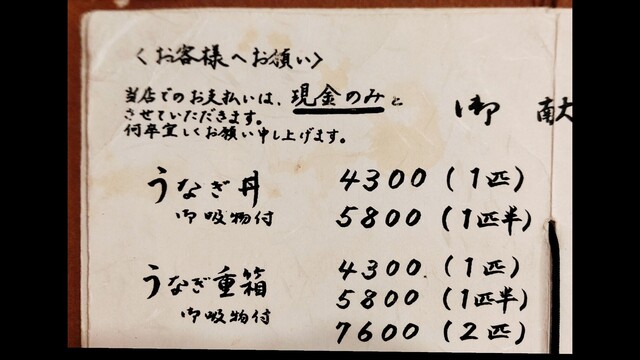 〈お客様へお願い〉
当店でのお支払いは、現金のみと
させていただきます。
何卒宜しくお願い申し上げます。
御献
うなぎ丼 4300(1匹)
御吸物付 5800(1匹半)
うなぎ重箱 4300(1匹)
5800(1匹半)
御吸物付 7600(2匹)